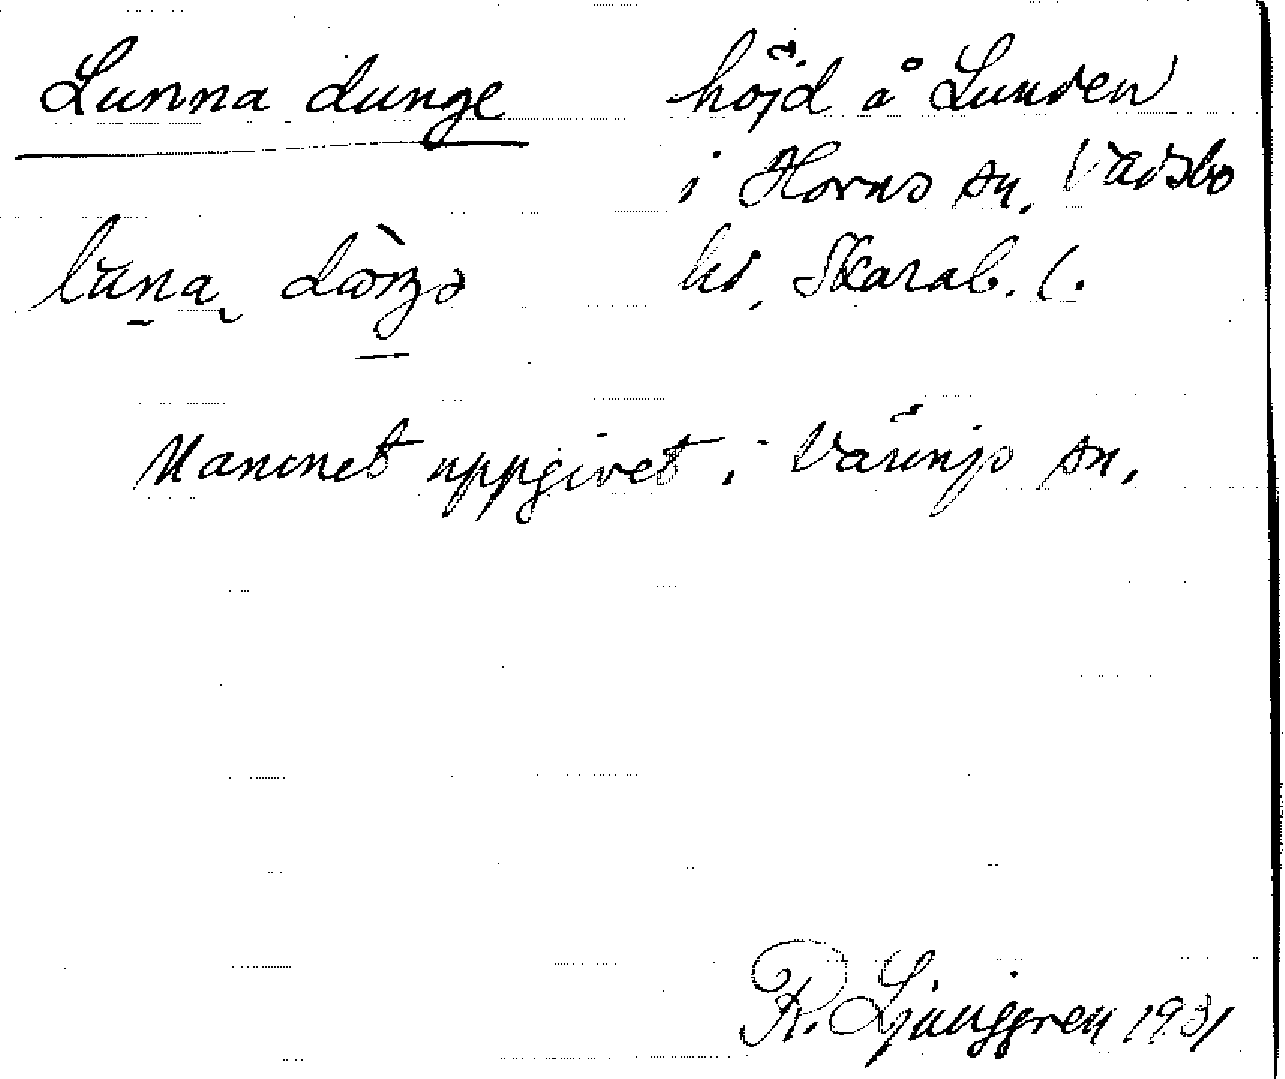 Lunna dunge
höjd å Lunden
i Horns sn, Vadsbo
hd, Skarab. l.
Namnet uppgivet i Värings sn.
R. Ljunggren 1931